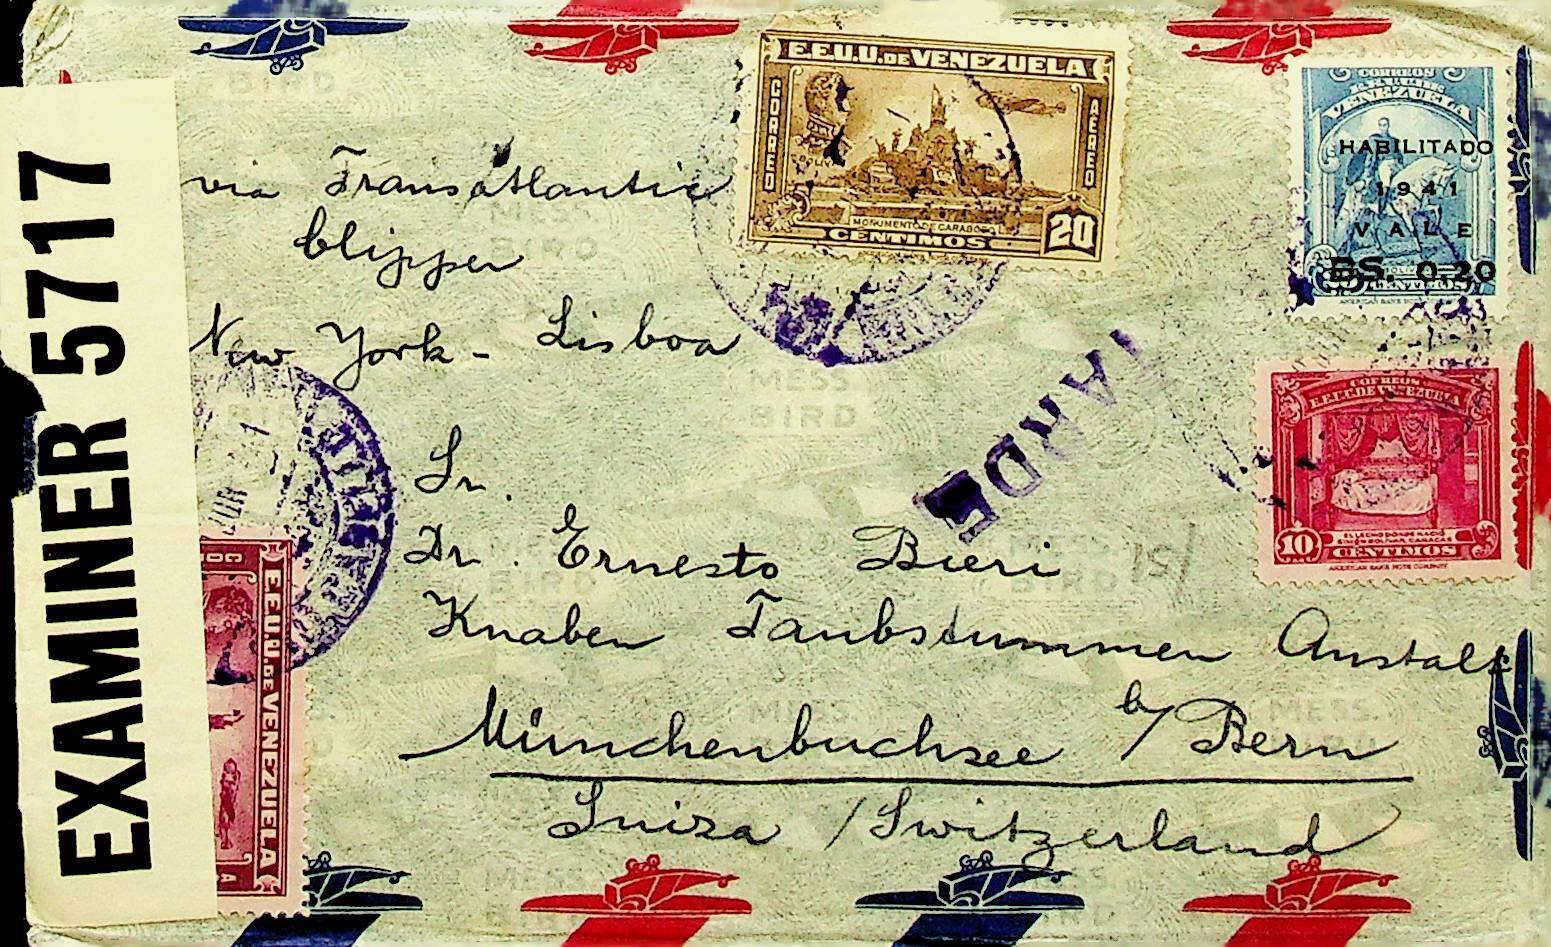 EXAMINER 5717
via Transatlantic
Clipper
New York - Lisboa
Sr.
Dr. Ernesto Bieri
Knaben Taubstummen Anstalt
Münchenbuchsee b/ Bern
Suiza / Switzerland
TARDE
151
E.E.U.U. DE VENEZUELA
CORREO
AEREO
MONUMENTO DE CARABOBO
CENTIMOS
20
CORREOS
VENEZUELA
HABILITADO
1941
VALE
BS. 0.20
CENTIMOS
CORREOS
E.E.U.U. DE VENEZUELA
10
CENTIMOS
AMERICAN BANK NOTE COMPANY
E.E.U.U. DE VENEZUELA
MESS
BIRD